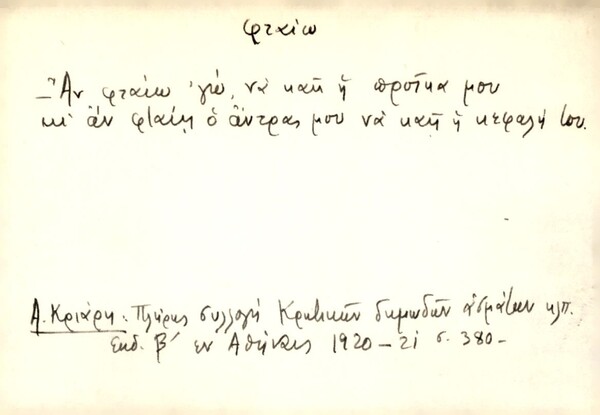 φταίω
– Ἂν φταίω 'γώ, νὰ καῇ ἡ προῖκα μου
κι' ἂν φταίῃ ὁ ἄντρας μου νὰ καῇ ἡ κεφαλή του.
Α. Κριάρη: Πλήρης συλλογή Κρητικῶν δημωδῶν ᾀσμάτων κλπ.
Εκδ. β´ εν Αθήναις 1920 – 21 σ. 380 –